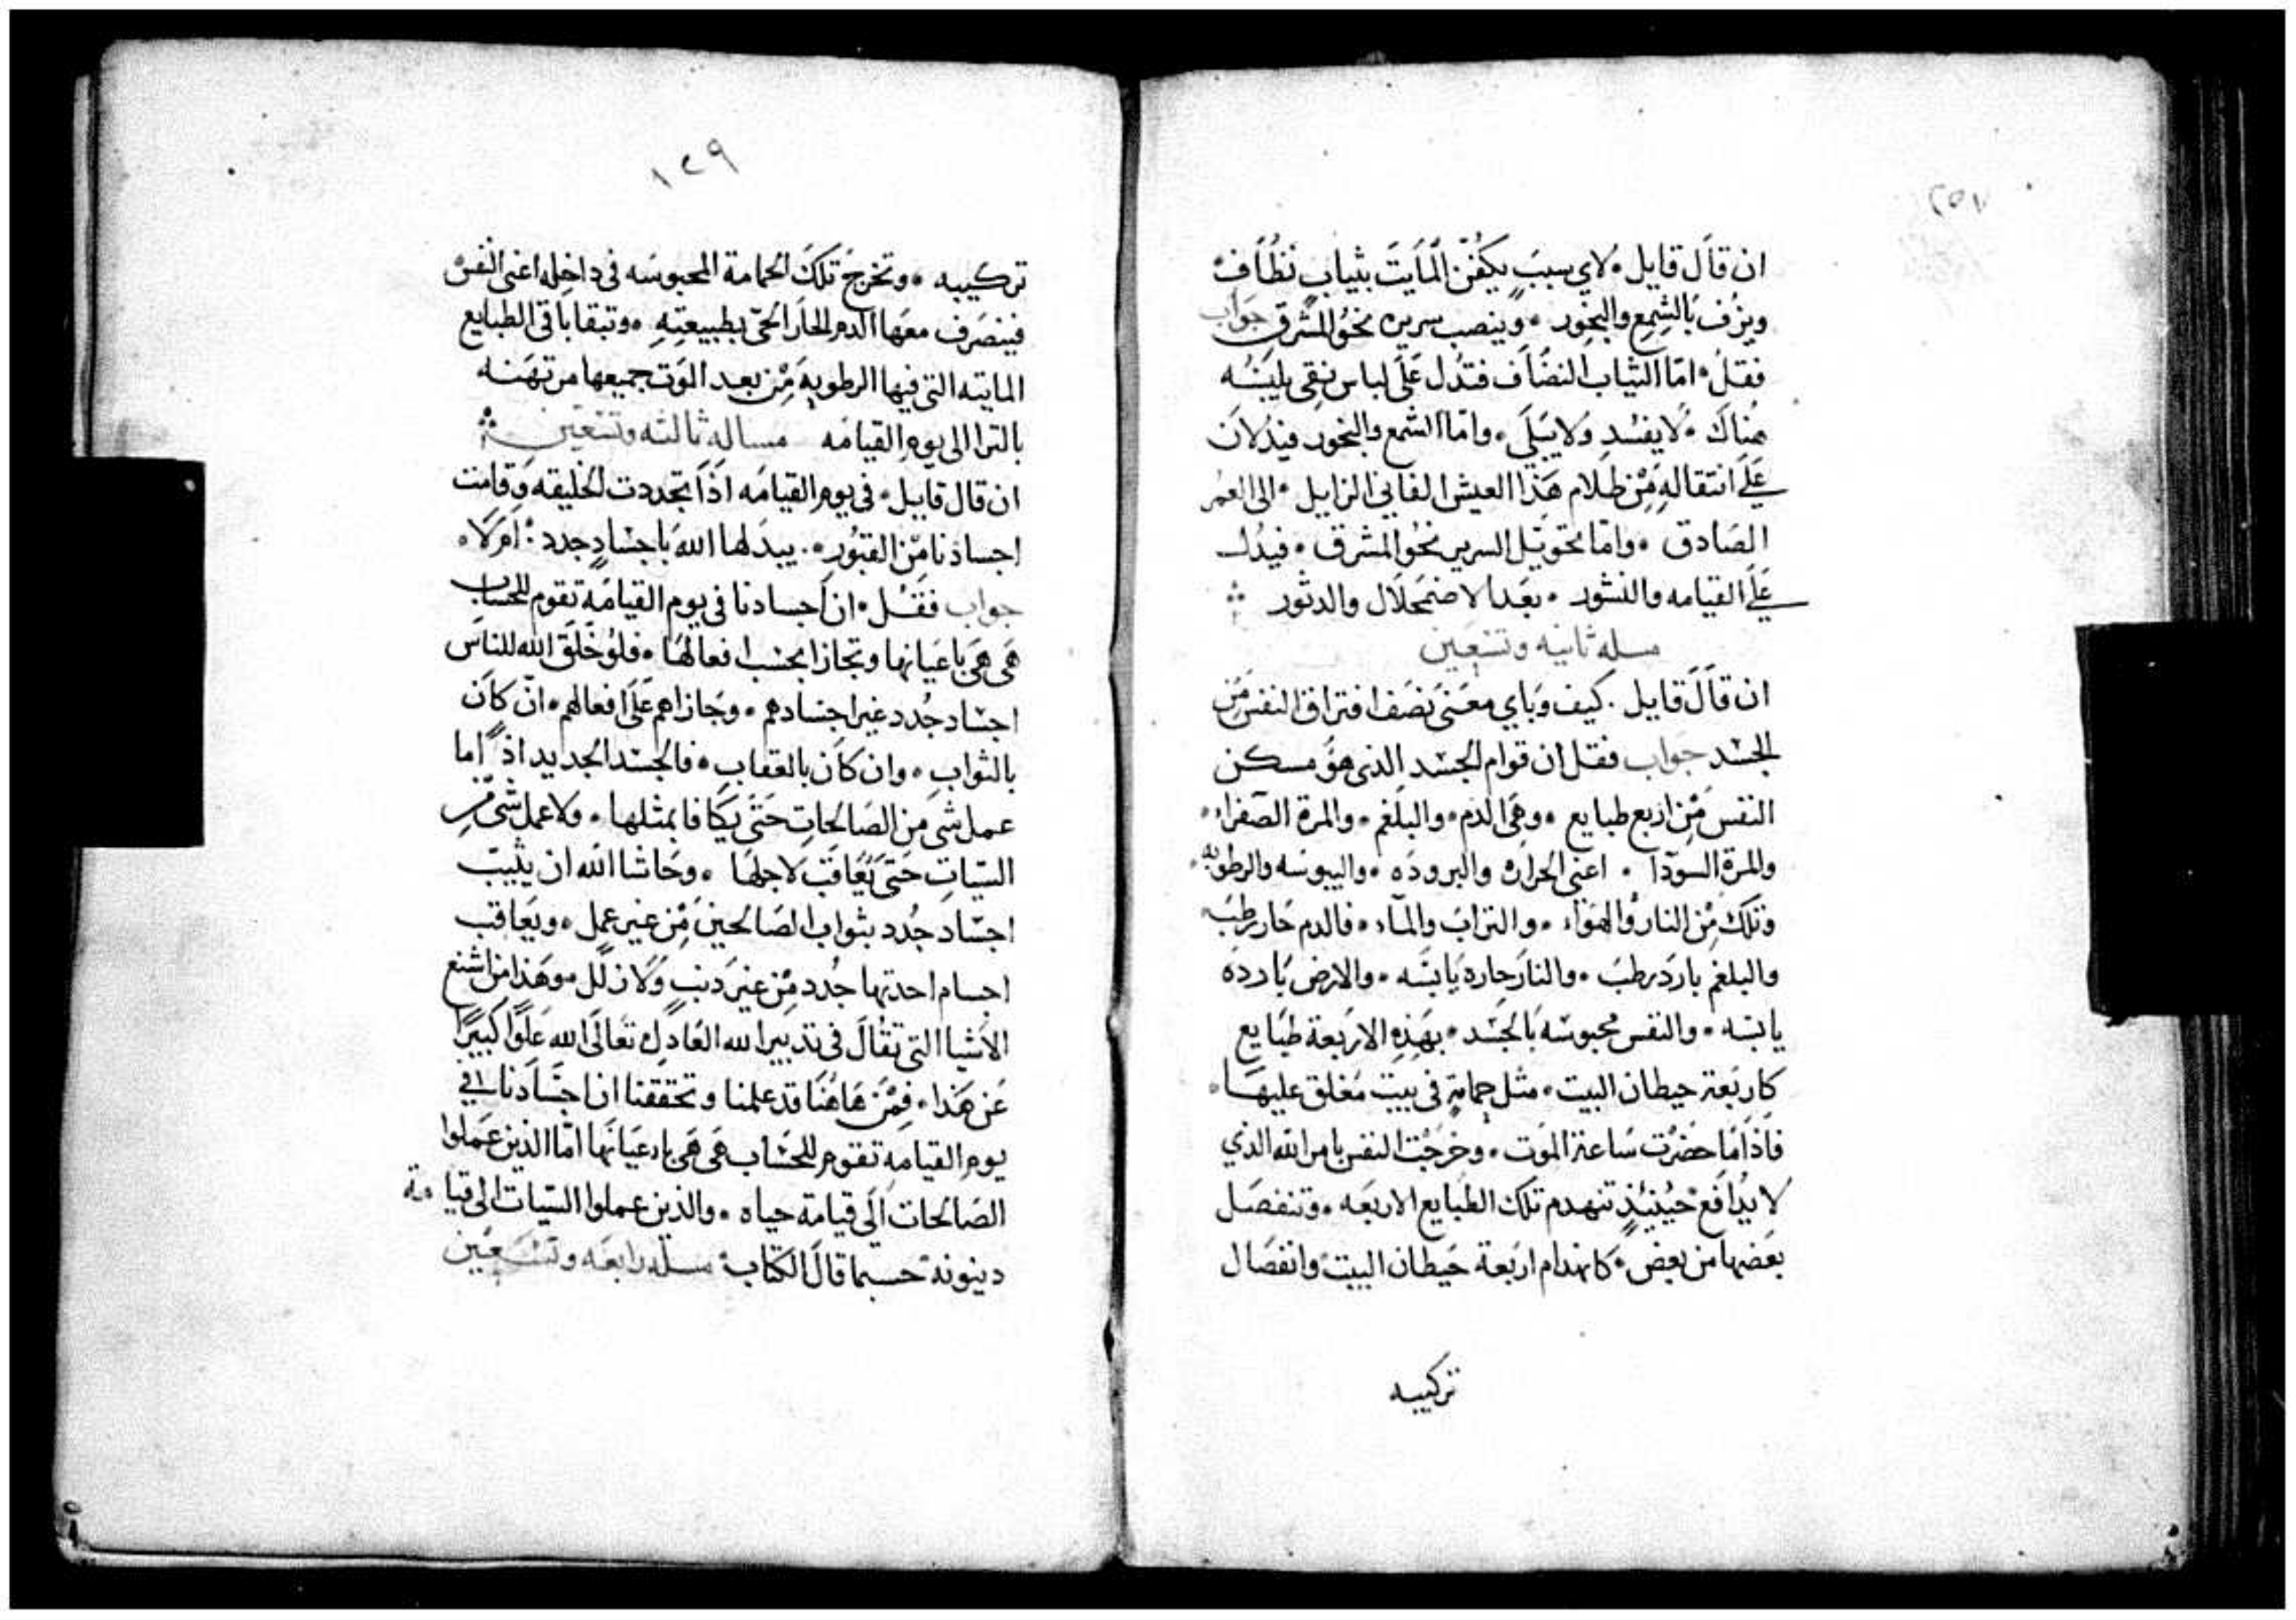 ان قال قايل لاي سبب يكفن المايت بثياب نظاف
ويزف بالشمع والبخور وينصب سريره نحو المشرق جواب
فقل اما الثياب النضاف فتدل على لباس نقي يلبسه
هناك لا يفسد ولا يبلى واما الشمع والبخور فيدلان
على انتقاله من ظلام هذا العيش الفاني الزايل الى العمر
الصادق واما تحويل السرير نحو المشرق فيدل
على القيامه والنشور بعد الاضمحلال والدثور
مسله ثانيه وتسعين
ان قال قايل كيف وباي معنى نصف افتراق النفس من
الجسد جواب فقل ان قوام الجسد الذي هو مسكن
النفس من اربع طبايع وهي الدم والبلغم والمرة الصفراء
والمرة السودا اعني الحراره والبروده واليبوسه والرطوبه
وتلك من النار والهواء والتراب والماء فالدم حار رطب
والبلغم بارد رطب والنار حاره يابسه والارض بارده
يابسه والنفس محبوسه بالجسد بهذه الاربعة طبايع
كاربعة حيطان البيت مثل حمامة في بيت مغلق عليها
فاذا ما حضرت ساعة الموت وخرجت النفس بامر الله الذي
لا يدافع حينيذ تنهدم تلك الطبايع الاربعه وتنفصل
بعضها من بعض كانهدام اربعة حيطان البيت وانفصال
تركيبه
١٢٩
تركيبه وتخرج تلك الحمامة المحبوسه في داخله اعني النفس
فينصرف معها الدم الحار الحي بطبيعته وتبقا باقي الطبايع
المايته التي فيها الرطوبه من بعد الموت جميعها مرتهنه
بالترا الى يوم القيامه مساله ثالثه وتسعين
ان قال قايل في يوم القيامه اذا تجددت الخليقه وقامت
اجسادنا من القبور يبدلها الله باجساد جدد ام لا
جواب فقل ان اجسادنا في يوم القيامه تقوم للحساب
هي هي باعيانها وتجازا بحسب افعالها فلو خلق الله للناس
اجساد جدد غير اجسادهم وجازاهم على افعالهم ان كان
بالثواب وان كان بالعقاب فالجسد الجديد اذا ما
عمل شي من الصالحات حتى يكافا بمثلها ولا عمل شي من
السيات حتى يعاقب لاجلها وحاشا الله ان يثيب
اجساد جدد بثواب الصالحين من غير عمل ويعاقب
اجسام احدثها جدد من غير دنب ولا زلل وهذا من اشنع
الاشيا التي تقال في تدبير الله العادل تعالى الله علوا كبيرا
عن هذا فمن هاهنا قد علمنا وتحققنا ان اجسادنا في
يوم القيامه تقوم للحساب هي هي باعيانها اما الذين عملوا
الصالحات الى قيامة حياه والذين عملوا السيات الى قيامة
دينونة حسبما قال الكتاب مسله رابعه وتسعين